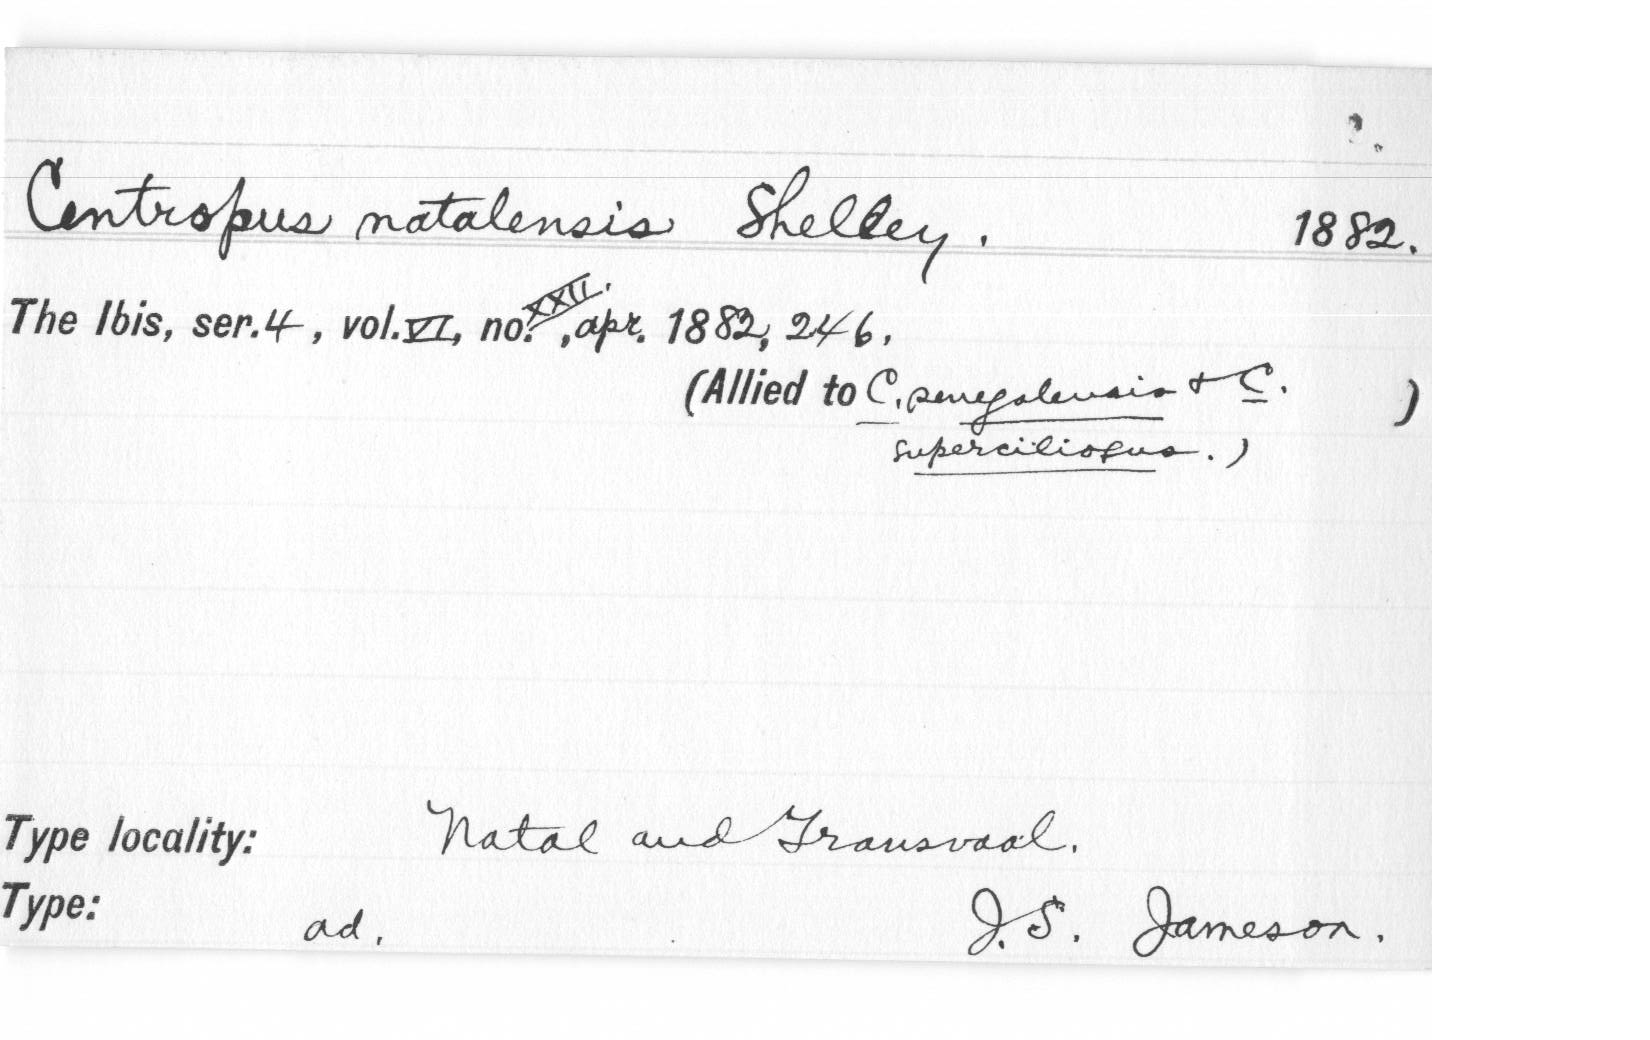 Centropus natalensis Shelley. 1882.
The Ibis, ser. 4, vol. VI, no. XXII., apr. 1882, 246.
(Allied to C. senegalensis + C. )
superciliosus.)
Type locality: Natal and Transvaal.
Type: ad. J.S. Jameson.